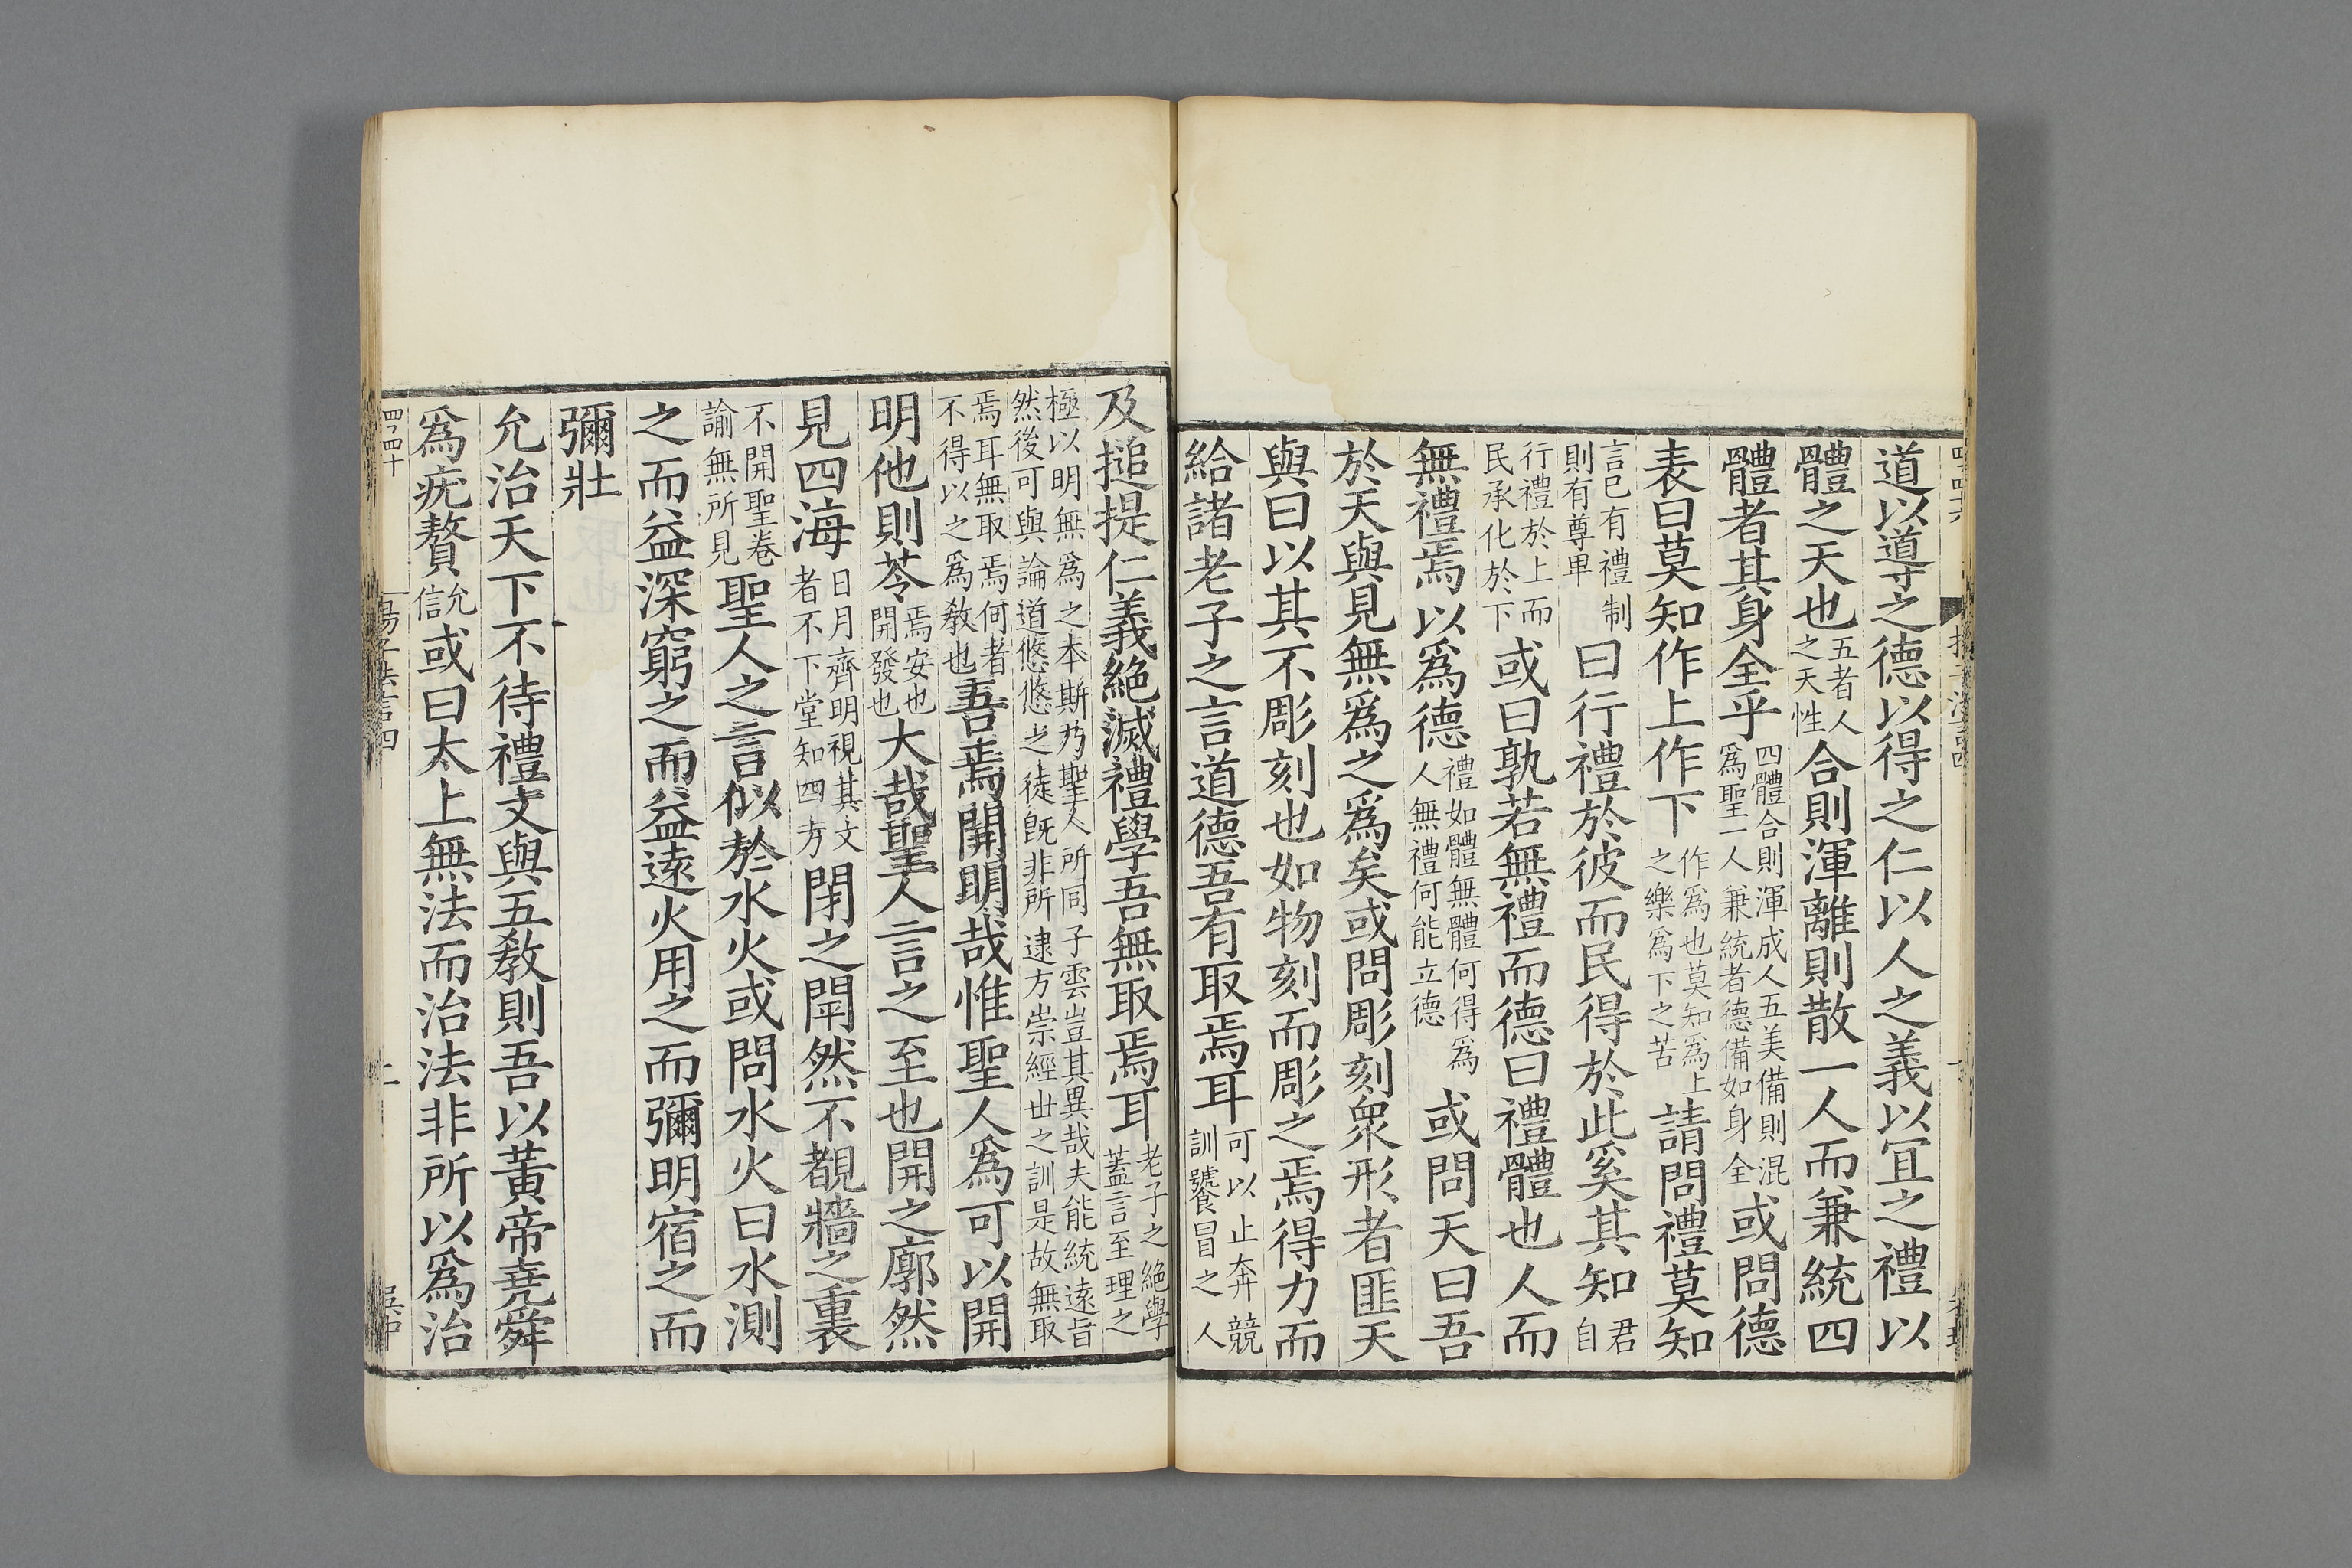 道以導之德以得之仁以人之義以宜之禮以
體之天也五者人之天性合則渾離則散一人而兼統四
體者其身全乎四體合則渾成人五美備則混爲聖一人兼統者德備如身全或問德
表曰莫知作上作下作爲也莫知爲上之樂爲下之苦請問禮莫知
曰行禮於彼而民得於此奚其知君自
言已有禮制則有尊卑
行禮於上而民承化於下或曰孰若無禮而德曰禮體也人而
無禮焉以爲德禮如體無體何得爲人無禮何能立德或問天曰吾
於天與見無爲之爲矣或問彫刻衆形者匪天
與曰以其不彫刻也如物刻而彫之焉得力而
給諸老子之言道德吾有取焉耳可以止奔競訓饕冒之人
及搥提仁義絶滅禮學吾無取焉耳老子之絶學蓋言至理之
極以明無爲之本斯乃聖人所同子雲豈其異哉夫能統遠旨
然後可與論道悠悠之徒旣非所逮方崇經世之訓是故無取
焉耳無取焉何者不得以之爲教也吾焉開明哉惟聖人爲可以開
明他則苓焉安也開發也大哉聖人言之至也開之廓然
見四海日月齊明視其文者不下堂知四方閉之閛然不覩牆之裏
不開聖卷諭無所見聖人之言似於水火或問水火曰水測
之而益深窮之而益遠火用之而彌明宿之而
彌壯
允治天下不待禮文與五教則吾以黃帝堯舜
爲疣贅允信或曰太上無法而治法非所以爲治